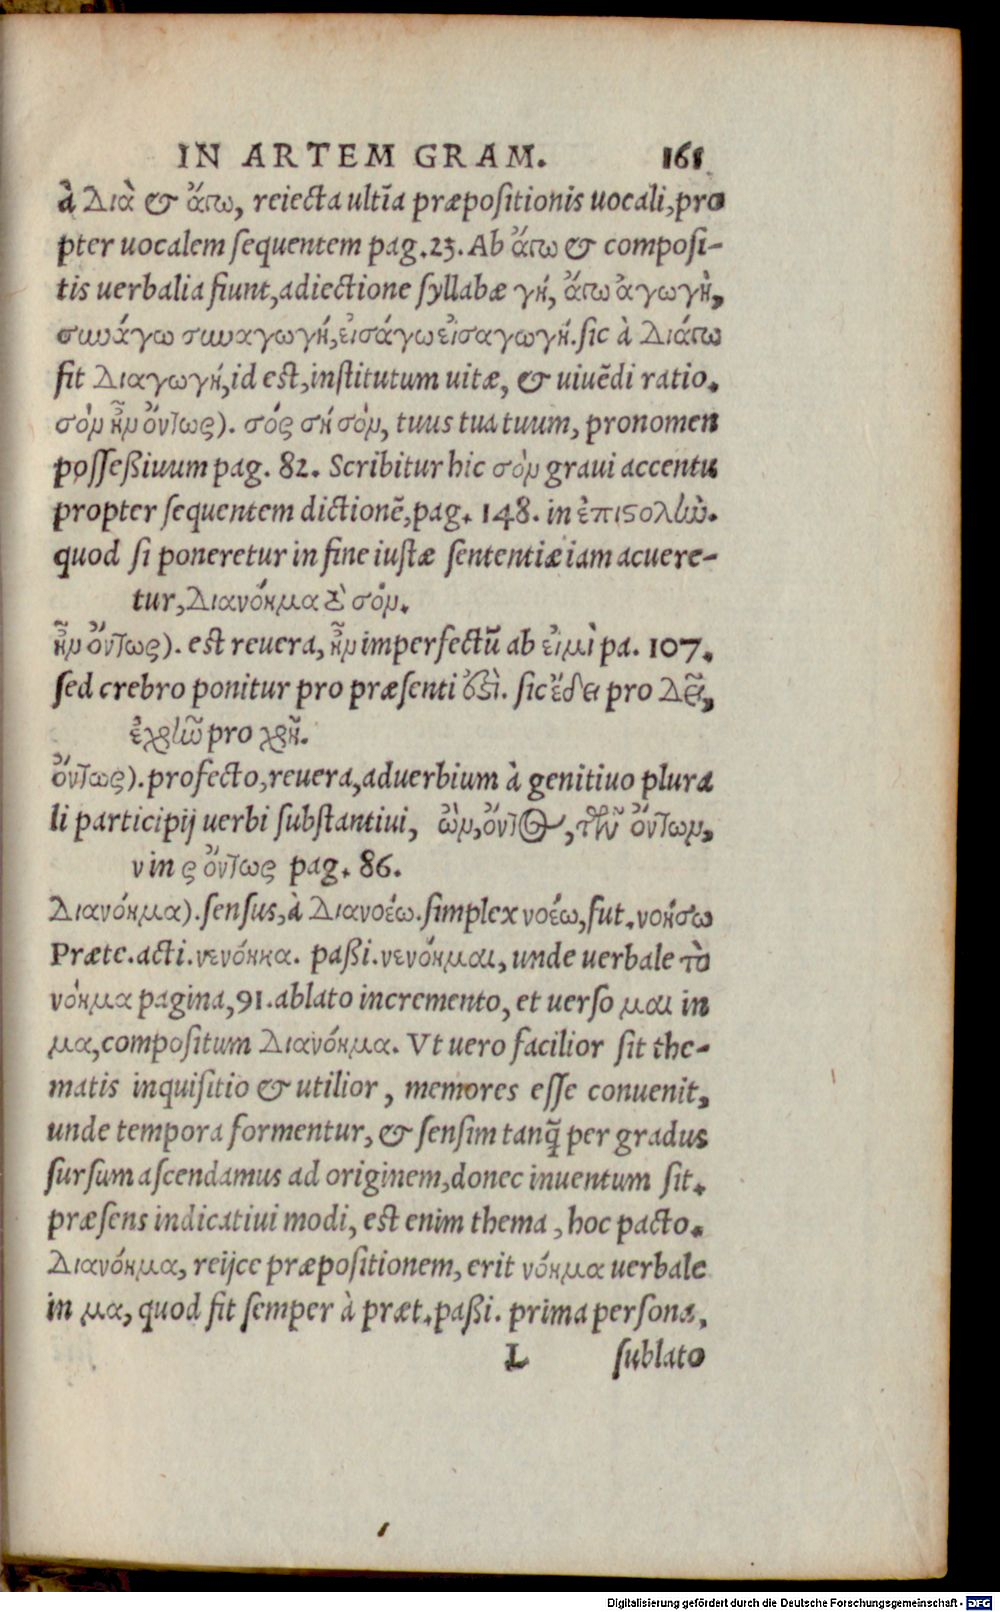 IN ARTEM GRAM. 161
à διὰ & ἄγω, reiecta ultīa præpositionis uocali, pro
pter uocalem sequentem pag. 23. Ab ἄγω & composi-
tis uerbalia fiunt, adiectione syllabæ γή, ἄγω ἀγωγὴ,
συνάγω συναγωγή, εἰσάγω εἰσαγωγή. sic à διάγω
fit διαγωγή, id est, institutum uitæ, & uiuēdi ratio.
σὸν ἦν ὄντως). σός σή σὸν, tuus tua tuum, pronomen
possessiuum pag. 82. Scribitur hic σὸν graui accentu
propter sequentem dictionē, pag. 148. in ἐπιστολῶν.
quod si poneretur in fine iustæ sententiæ iam acuere-
tur, διανόημα τὸ σόν.
ἦν ὄντως). est reuera, ἦν imperfectū ab εἰμὶ pa. 107.
sed crebro ponitur pro præsenti ἐστὶ. sic ἔδει pro δεῖ,
ἐχρῆν pro χρή.
ὄντως). profecto, reuera, aduerbium à genitiuo plura
li participij uerbi substantiui, ὢν, ὄντος, τῶν ὄντων,
ν in ς ὄντως pag. 86.
διανόημα). sensus, à διανοέω. simplex νοέω, fut. νοήσω
Præte. acti. νενόηκα. paßi. νενόημαι, unde uerbale τὸ
νόημα pagina, 91. ablato incremento, et uerso μαι in
μα, compositum διανόημα. Vt uero facilior sit the-
matis inquisitio & utilior, memores esse conuenit,
unde tempora formentur, & sensim tanq̃ per gradus
sursum ascendamus ad originem, donec inuentum sit.
præsens indicatiui modi, est enim thema, hoc pacto.
διανόημα, reijce præpositionem, erit νόημα uerbale
in μα, quod fit semper à præt. paßi. prima persona,
L sublato
Digitalisierung gefördert durch die Deutsche Forschungsgemeinschaft - DFG